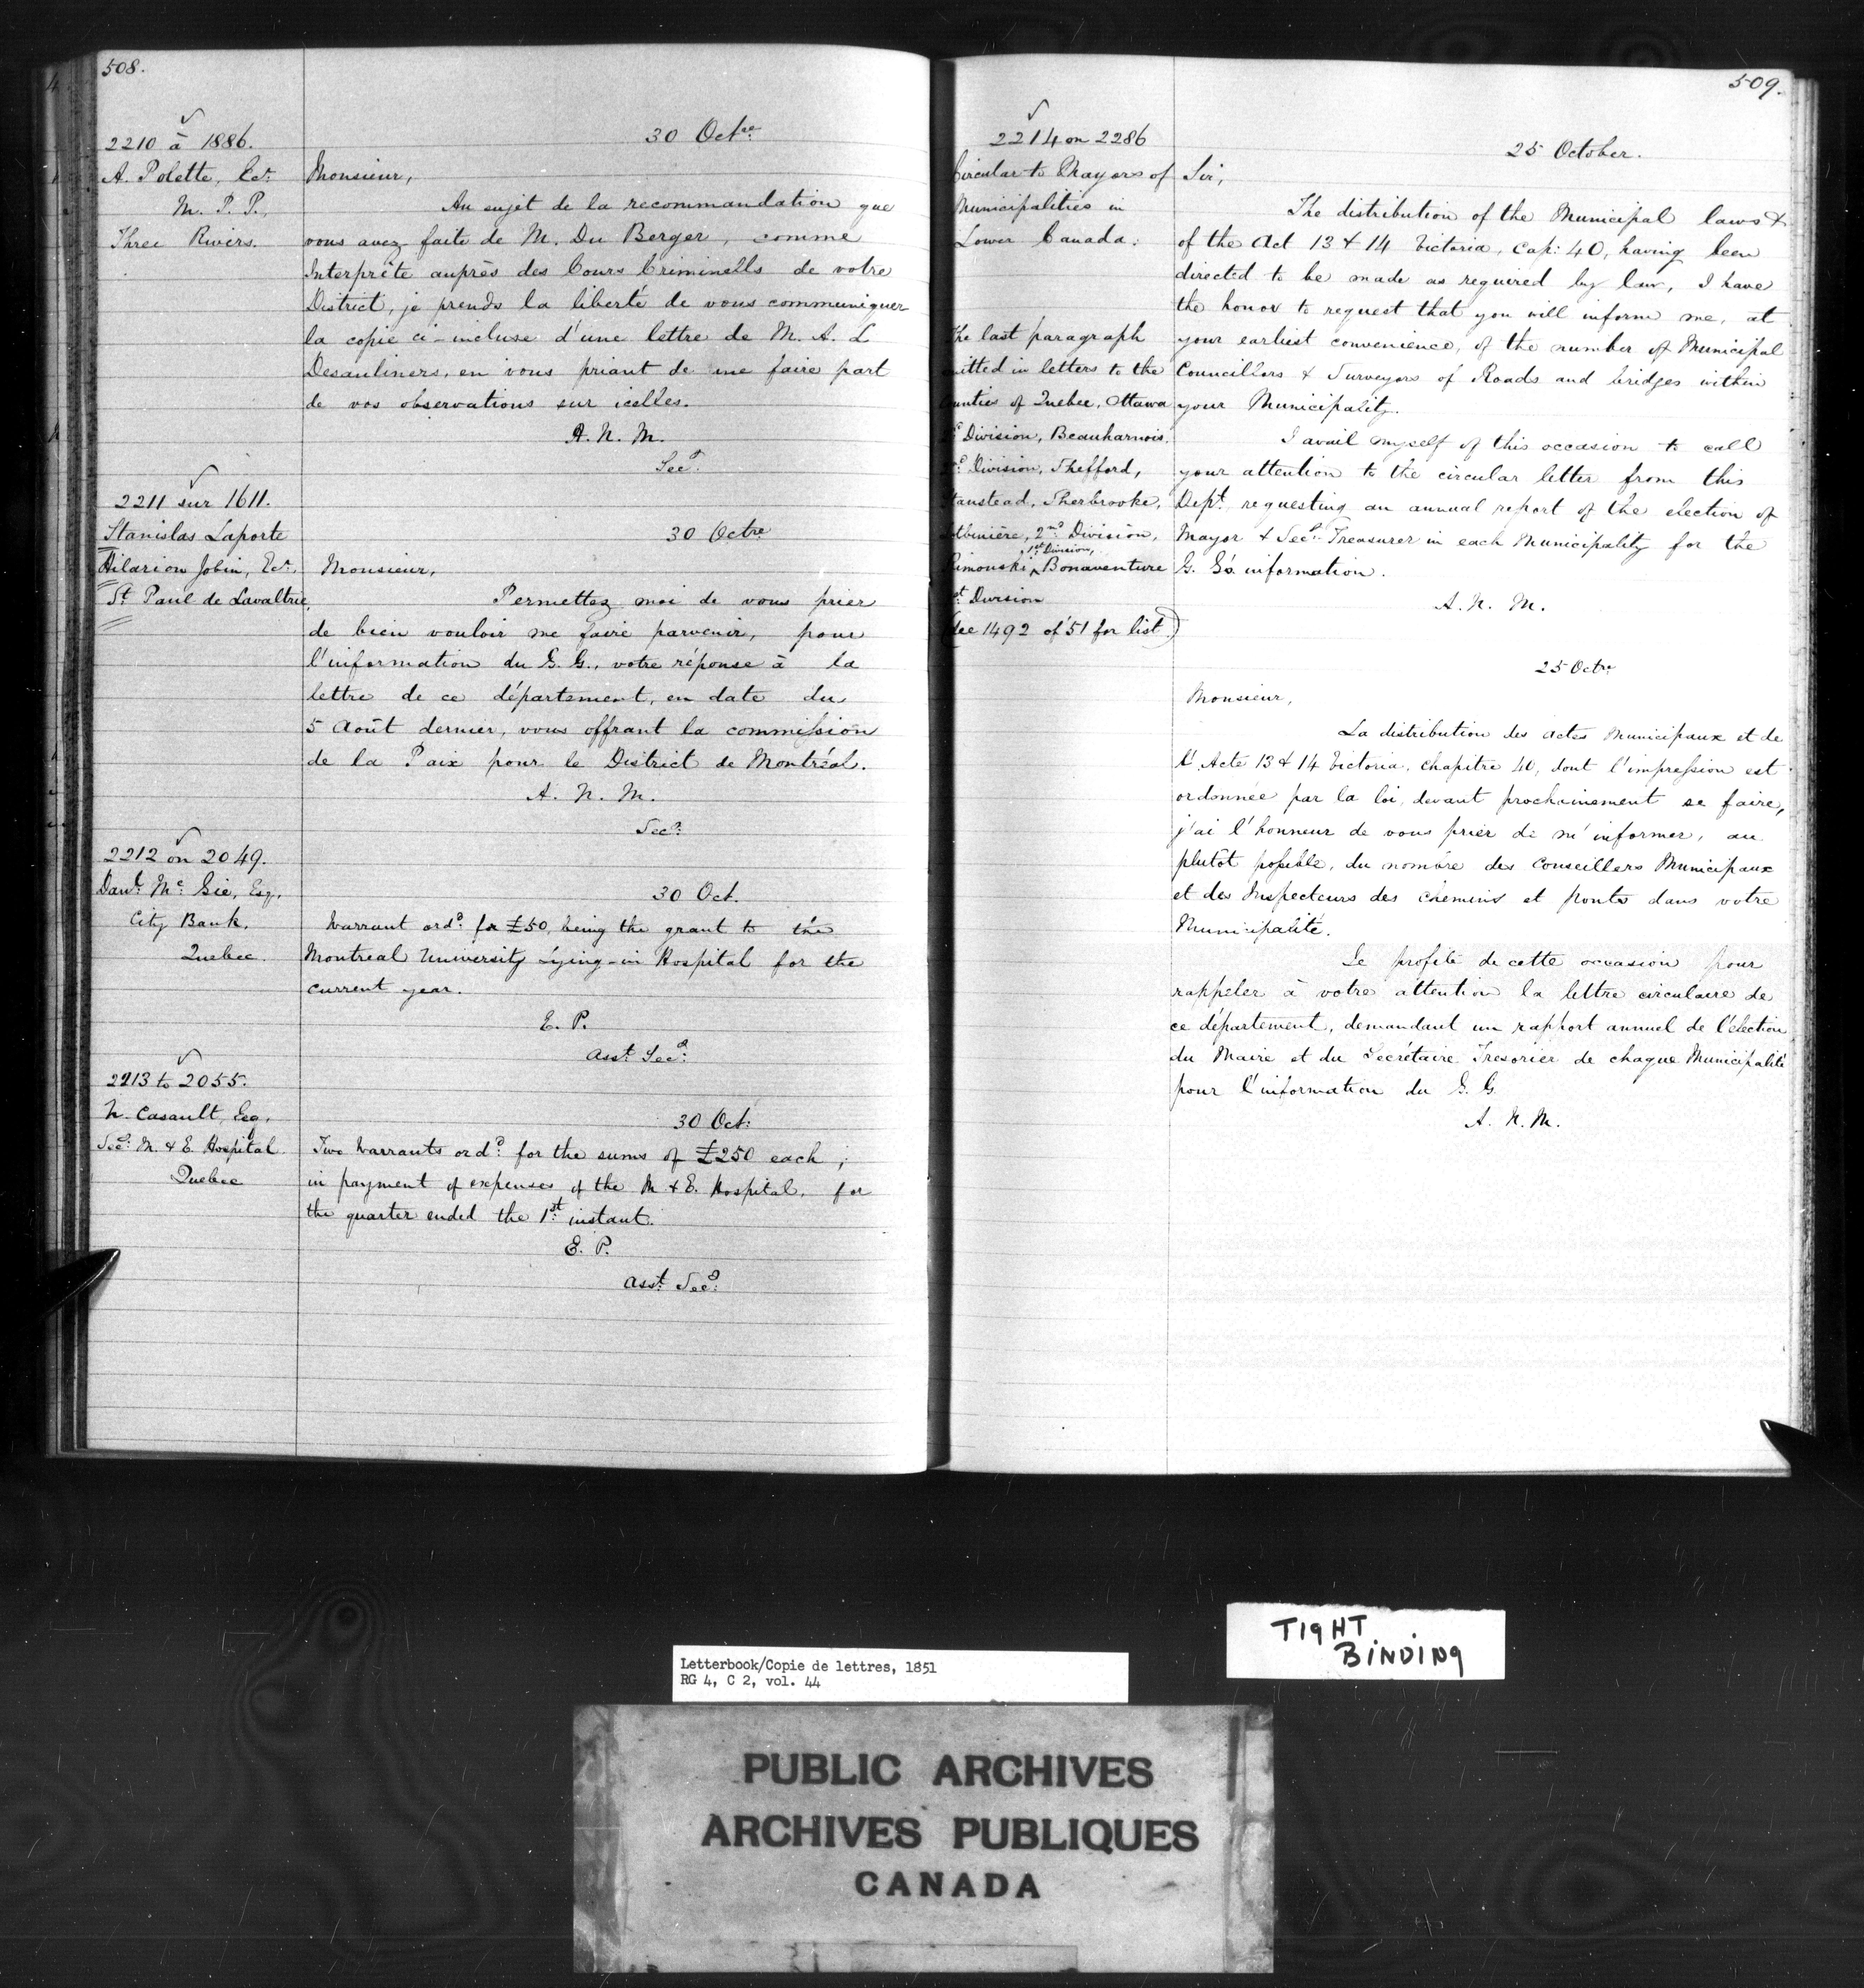 508.
2210 à 1886.
A. Polette, Ecr.
M. P. P.,
Three Rivers.
30 Octre
Monsieur,
Au sujet de la recommandation que
vous avez faite de M. Du Berger, comme
Interprête auprès des Cours Criminelles de votre
District, je prends la liberté de vous communiquer
la copie ci-incluse d'une lettre de M. A. L
Desauliners, en vous priant de me faire part
de vos observations sur icelles.
A. N. M.
Secy.
2211 sur 1611.
Stanislas Laporte
Hilarion Jobin, Ecr.
St Paul de Lavaltrie.
30 Octre
Monsieur,
Permettez moi de vous prier
de bien vouloir me faire parvenir, pour
l'information du G. G., votre réponse à la
lettre de ce département, en date du
5 Août dernier, vous offrant la commission
de la Paix pour le District de Montréal.
A. N. M.
Secy.
2212 on 2049.
Danl. Mc. Gie, Esq.
City Bank,
Quebec.
30 Oct.
Warrant ord. for £50, being the grant to the
Montreal University Lying-in Hospital for the
current year.
E. P.
Asst. Secy.
2213 to 2055.
N. Casault, Esq.
Secy. M. & E. Hospital
Quebec
30 Oct.
Two Warrants ord. for the sums of £250 each;
in payment of expenses of the M & E. Hospital, for
the quarter ended the 1st. instant.
E. P.
Asst. Secy.
509.
2214 on 2286
Circular to Mayors of
Municipalities in
Lower Canada.
The last paragraph
omitted in letters to the
Counties of Quebec, Ottawa
Division, Beauharnois.
Division, Shefford,
Stanstead, Sherbrooke,
Lotbinière, 2nd Division,
1st Division,
Rimouski, Bonaventure
1st Division
(See 1492 of '51 for list)
25 October.
Sir,
The distribution of the Municipal laws &
of the Act 13 & 14 Victoria, Cap: 40, having been
directed to be made as required by law, I have
the honor to request that you will inform me, at
your earliest convenience, of the number of Municipal
Councillors & Surveyors of Roads and bridges within
your Municipality.
I avail myself of this occasion to call
your attention to the circular letter from this
Dept. requesting an annual report of the election of
Mayor & Secy. Treasurer in each Municipality for the
G. G's. information.
A. N. M.
25 Octre
Monsieur,
La distribution des actes Municipaux et de
l'Acte 13 & 14 Victoria, chapitre 40, dont l'impression est
ordonnée par la loi, devant prochainement se faire,
j'ai l'honneur de vous prier de m'informer, au
plutôt possible, du nombre des Conseillers Municipaux
et des Inspecteurs des chemins et ponts dans votre
Municipalité.
Je profite de cette occasion pour
rappeler à votre attention la lettre circulaire de
ce département, demandant un rapport annuel de l'élection
du Maire et du Secrétaire Tresorier de chaque Municipalité
pour l'information du G. G.
A. N. M.
TIGHT
BINDING
Letterbook/Copie de lettres, 1851
RG 4, C 2, vol. 44
PUBLIC ARCHIVES
ARCHIVES PUBLIQUES
CANADA